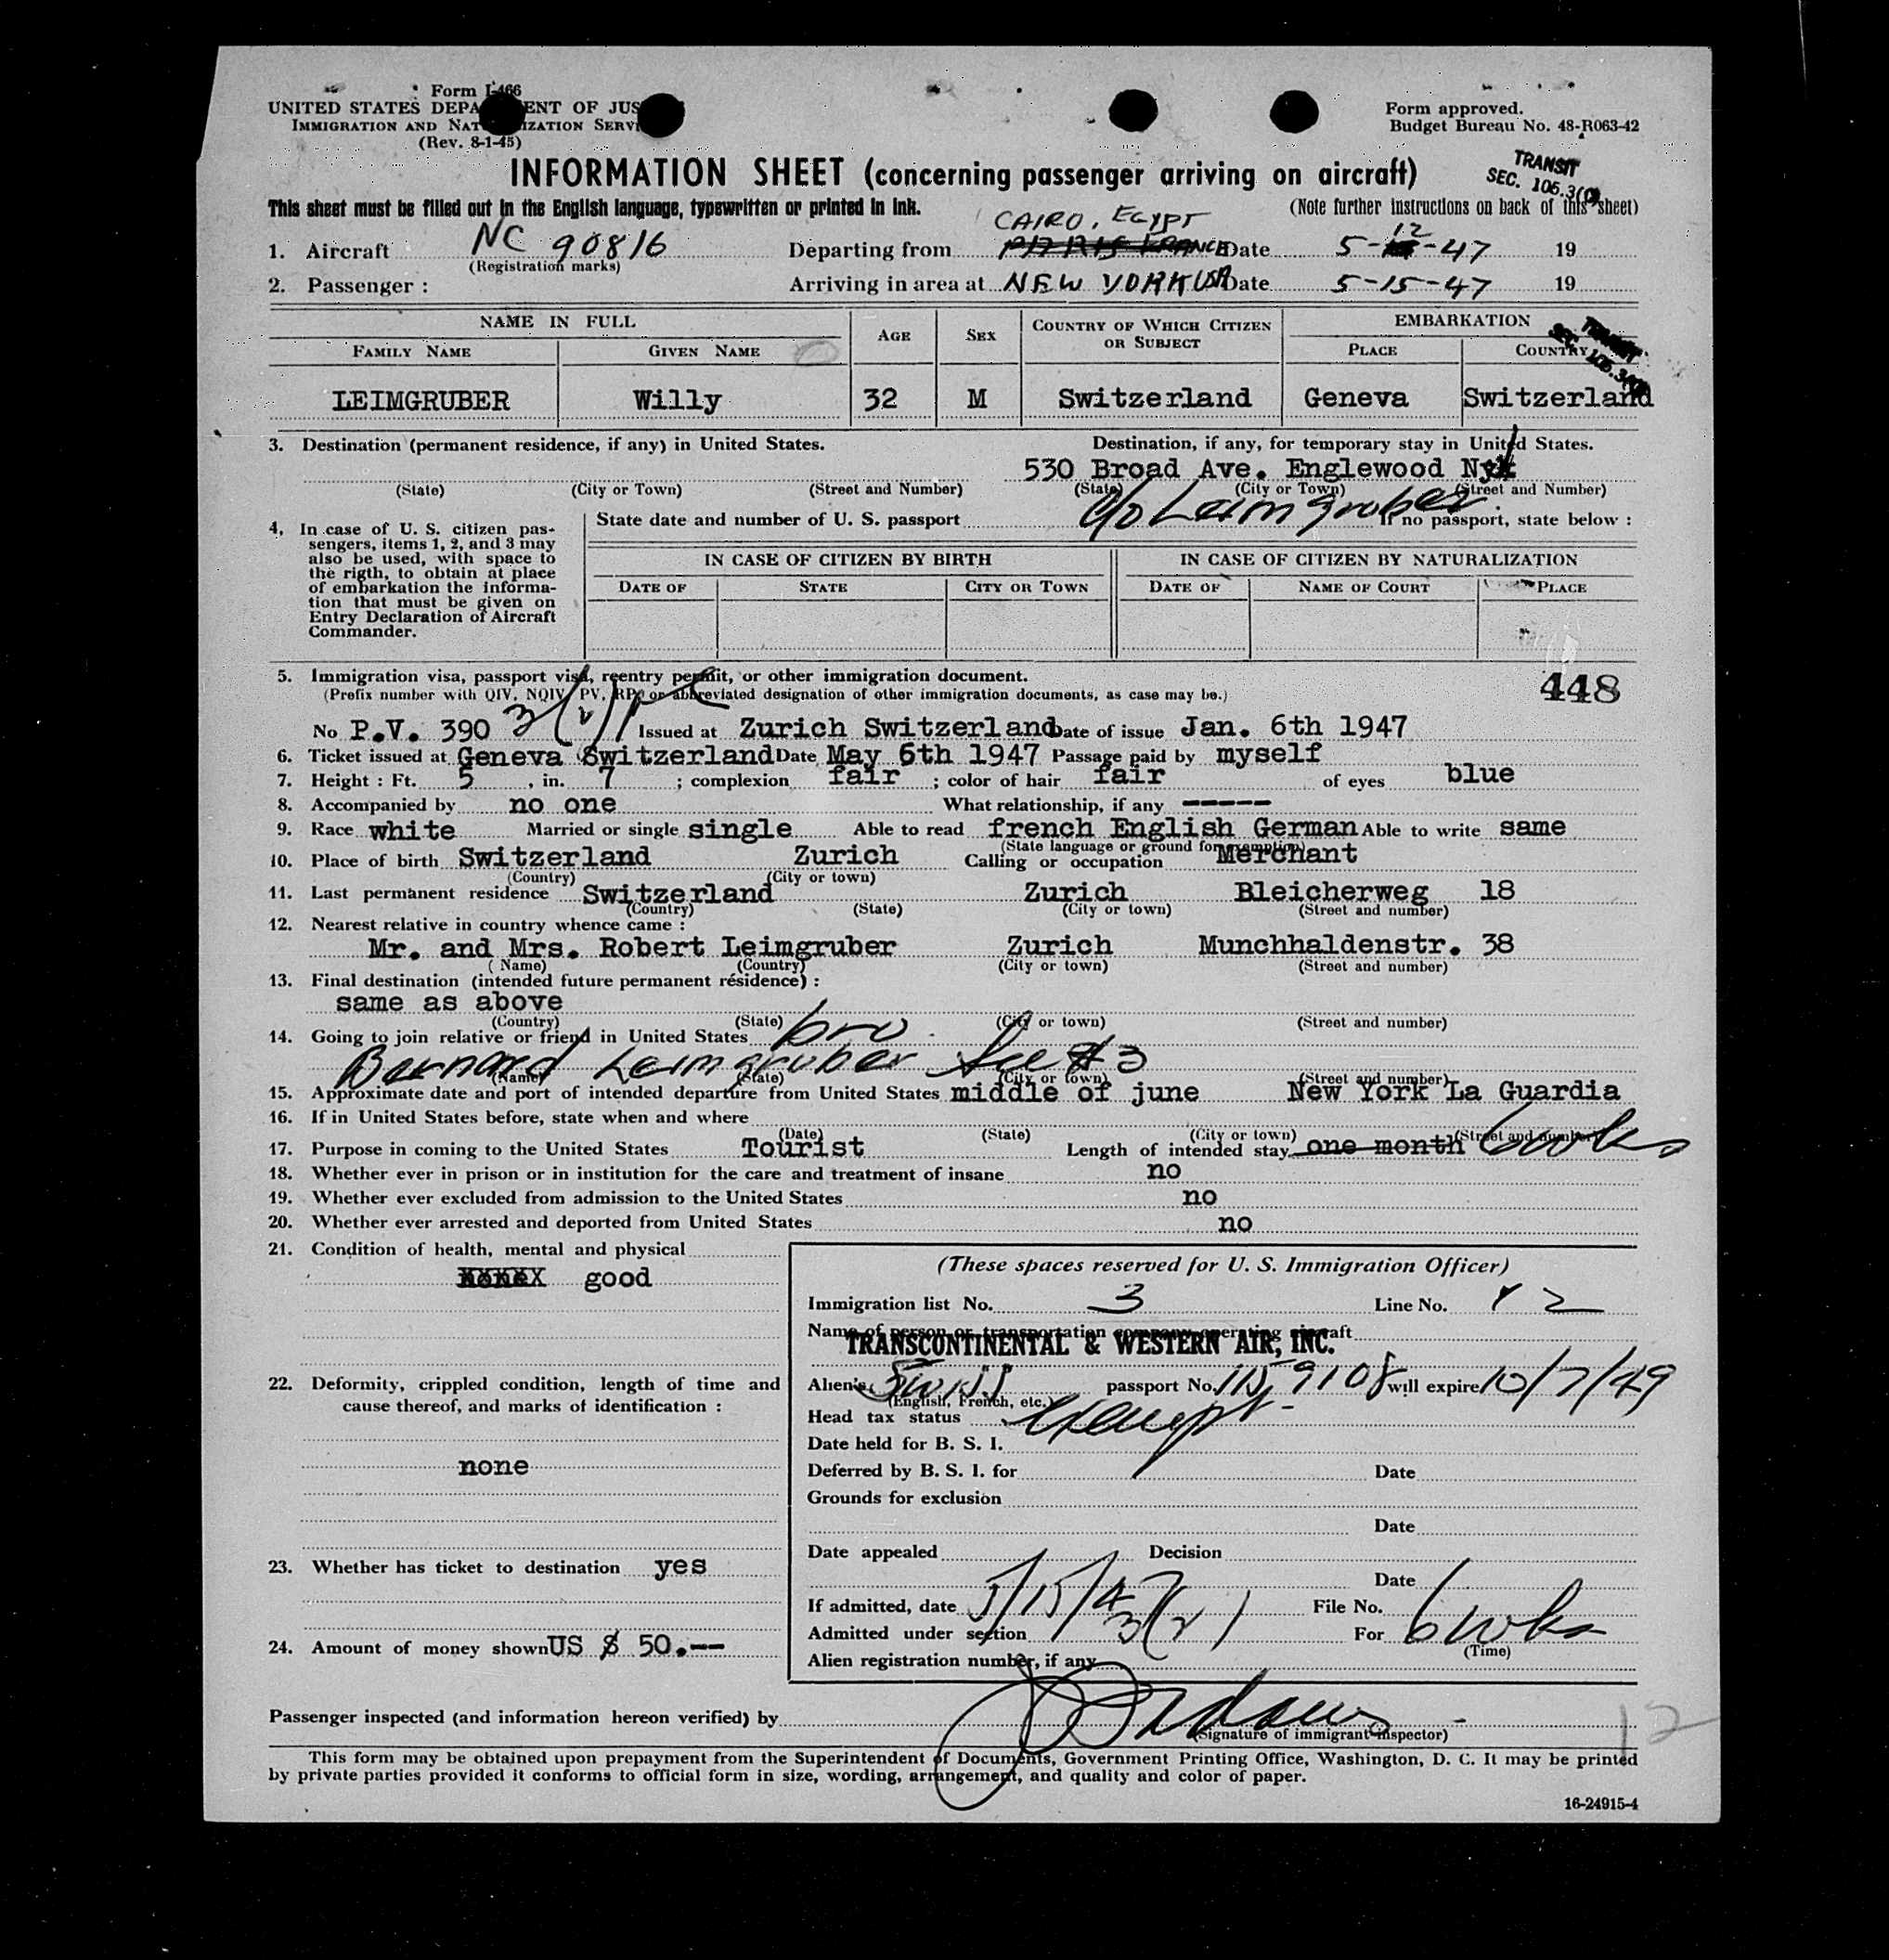 Form I-466
UNITED STATES DEPARTMENT OF JUSTICE
IMMIGRATION AND NATURALIZATION SERVICE
(Rev. 8-1-45)
Form approved.
Budget Bureau No. 48-R063-42
INFORMATION SHEET (concerning passenger arriving on aircraft)
TRANSIT
SEC. 105.3
This sheet must be filled out in the English language, typewritten or printed in ink.
(Note further instructions on back of this sheet)
CAIRO, EGYPT
1. Aircraft NC 90816 Departing from PARIS FRANCE Date 5-12-47 19
(Registration marks)
2. Passenger : Arriving in area at NEW YORK USA Date 5-15-47 19
NAME IN FULL AGE SEX COUNTRY OF WHICH CITIZEN OR SUBJECT EMBARKATION
FAMILY NAME GIVEN NAME PLACE COUNTRY
TRANSIT
SEC. 105.3
LEIMGRUBER Willy 32 M Switzerland Geneva Switzerland
3. Destination (permanent residence, if any) in United States. Destination, if any, for temporary stay in United States.
530 Broad Ave. Englewood
(State) (City or Town) (Street and Number) (State) (City or Town) (Street and Number)
c/o Leimgruber
4. In case of U. S. citizen pas-
sengers, items 1, 2, and 3 may
also be used, with space to
the rigth, to obtain at place
of embarkation the informa-
tion that must be given on
Entry Declaration of Aircraft
Commander.
State date and number of U. S. passport If no passport, state below :
IN CASE OF CITIZEN BY BIRTH IN CASE OF CITIZEN BY NATURALIZATION
DATE OF STATE CITY OR TOWN DATE OF NAME OF COURT PLACE
5. Immigration visa, passport visa, reentry permit, or other immigration document.
(Prefix number with QIV, NQIV, PV, RP, or abbreviated designation of other immigration documents, as case may be.)
448
No P.V. 390 3(2) Issued at Zurich Switzerland Date of issue Jan. 6th 1947
6. Ticket issued at Geneva Switzerland Date May 6th 1947 Passage paid by myself
7. Height : Ft. 5 , in. 7 ; complexion fair ; color of hair fair of eyes blue
8. Accompanied by no one What relationship, if any -----
9. Race white Married or single single Able to read french English German Able to write same
(State language or ground for exemption)
10. Place of birth Switzerland Zurich Calling or occupation Merchant
(Country) (City or town)
11. Last permanent residence Switzerland Zurich Bleicherweg 18
(Country) (State) (City or town) (Street and number)
12. Nearest relative in country whence came :
Mr. and Mrs. Robert Leimgruber Zurich Munchhaldenstr. 38
(Name) (Country) (City or town) (Street and number)
13. Final destination (intended future permanent résidence) :
same as above
(Country) (State) (City or town) (Street and number)
14. Going to join relative or friend in United States bro
Bernard Leimgruber See #3
(Name) (State) (City or town) (Street and number)
15. Approximate date and port of intended departure from United States middle of june New York La Guardia
16. If in United States before, state when and where
(Date) (State) (City or town) (Street and number)
17. Purpose in coming to the United States Tourist Length of intended stay one month 6 wks
18. Whether ever in prison or in institution for the care and treatment of insane no
19. Whether ever excluded from admission to the United States no
20. Whether ever arrested and deported from United States no
21. Condition of health, mental and physical
none good
22. Deformity, crippled condition, length of time and
cause thereof, and marks of identification :
none
23. Whether has ticket to destination yes
24. Amount of money shown US $ 50.--
(These spaces reserved for U. S. Immigration Officer)
Immigration list No. 3 Line No. 12
Name of person or transportation company operating aircraft
TRANSCONTINENTAL & WESTERN AIR, INC.
Alien's Swiss passport No. 1159108 will expire 10/7/49
(English, French, etc.)
Head tax status Exempt
Date held for B. S. I.
Deferred by B. S. I. for Date
Grounds for exclusion
Date
Date appealed Decision
Date
If admitted, date 5/15/47 File No.
Admitted under section 3(2) For 6 wks
(Time)
Alien registration number, if any
Passenger inspected (and information hereon verified) by
(Signature of immigrant inspector)
12
This form may be obtained upon prepayment from the Superintendent of Documents, Government Printing Office, Washington, D. C. It may be printed
by private parties provided it conforms to official form in size, wording, arrangement, and quality and color of paper.
16-24915-4